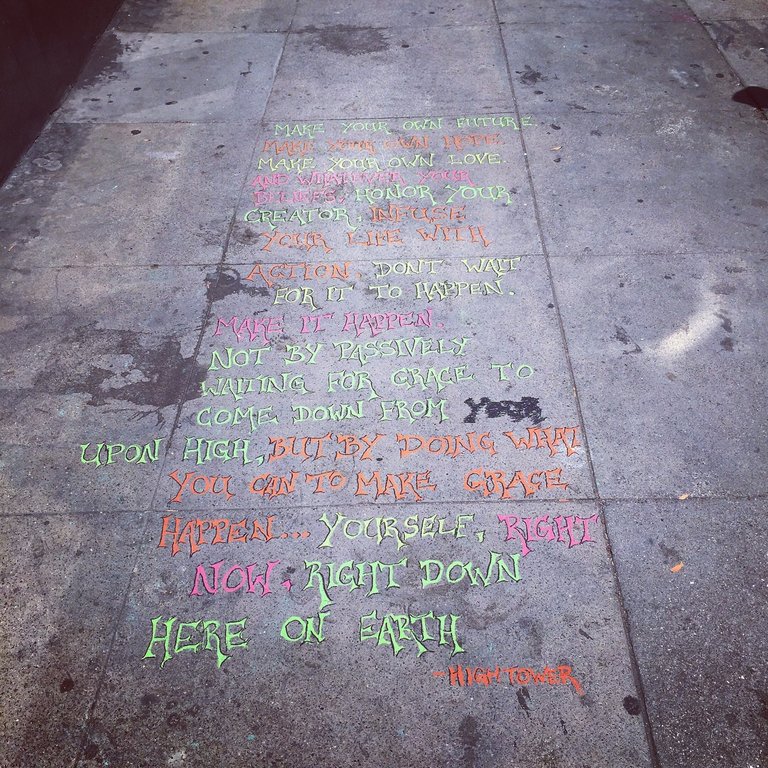 MAKE YOUR OWN FUTURE.
MAKE YOUR OWN HOPE.
MAKE YOUR OWN LOVE.
AND WHATEVER YOUR
BELIEFS, HONOR YOUR
CREATOR, INFUSE
YOUR LIFE WITH
ACTION. DON'T WAIT
FOR IT TO HAPPEN.
MAKE IT HAPPEN.
NOT BY PASSIVELY
WAITING FOR GRACE TO
COME DOWN FROM
UPON HIGH, BUT BY DOING WHAT
YOU CAN TO MAKE GRACE
HAPPEN... YOURSELF, RIGHT
NOW, RIGHT DOWN
HERE ON EARTH
-HIGHTOWER